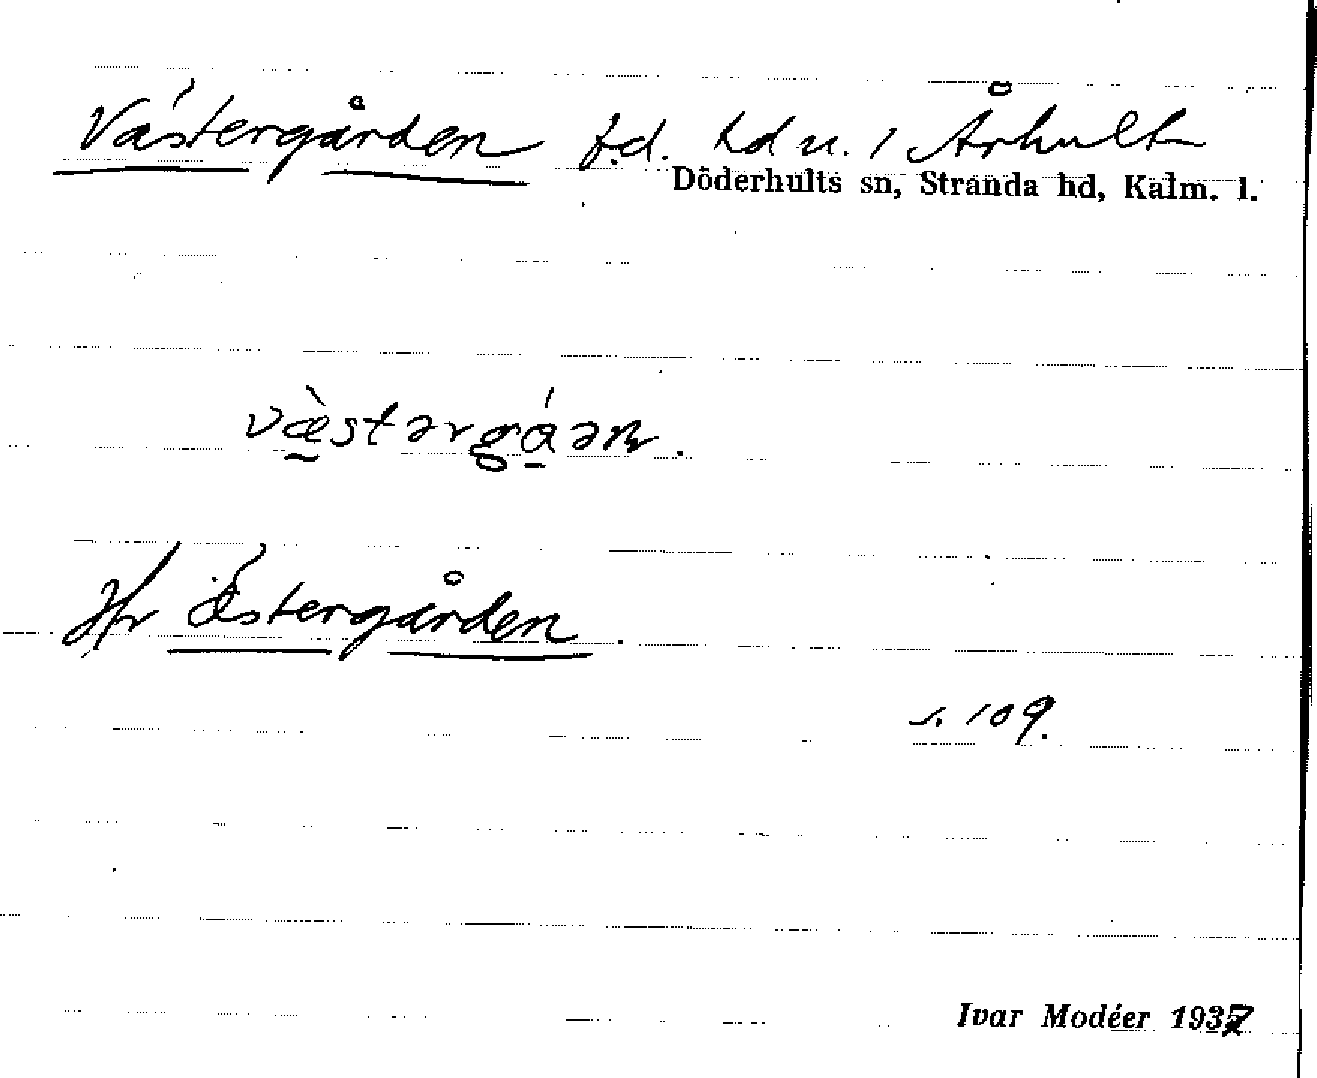 Västergården f.d. hdn. i Århult
Döderhults sn, Stranda hd, Kalm. l.
væ̀stərgɑ́ən.
Jfr Östergården.
s. 109.
Ivar Modéer 1937